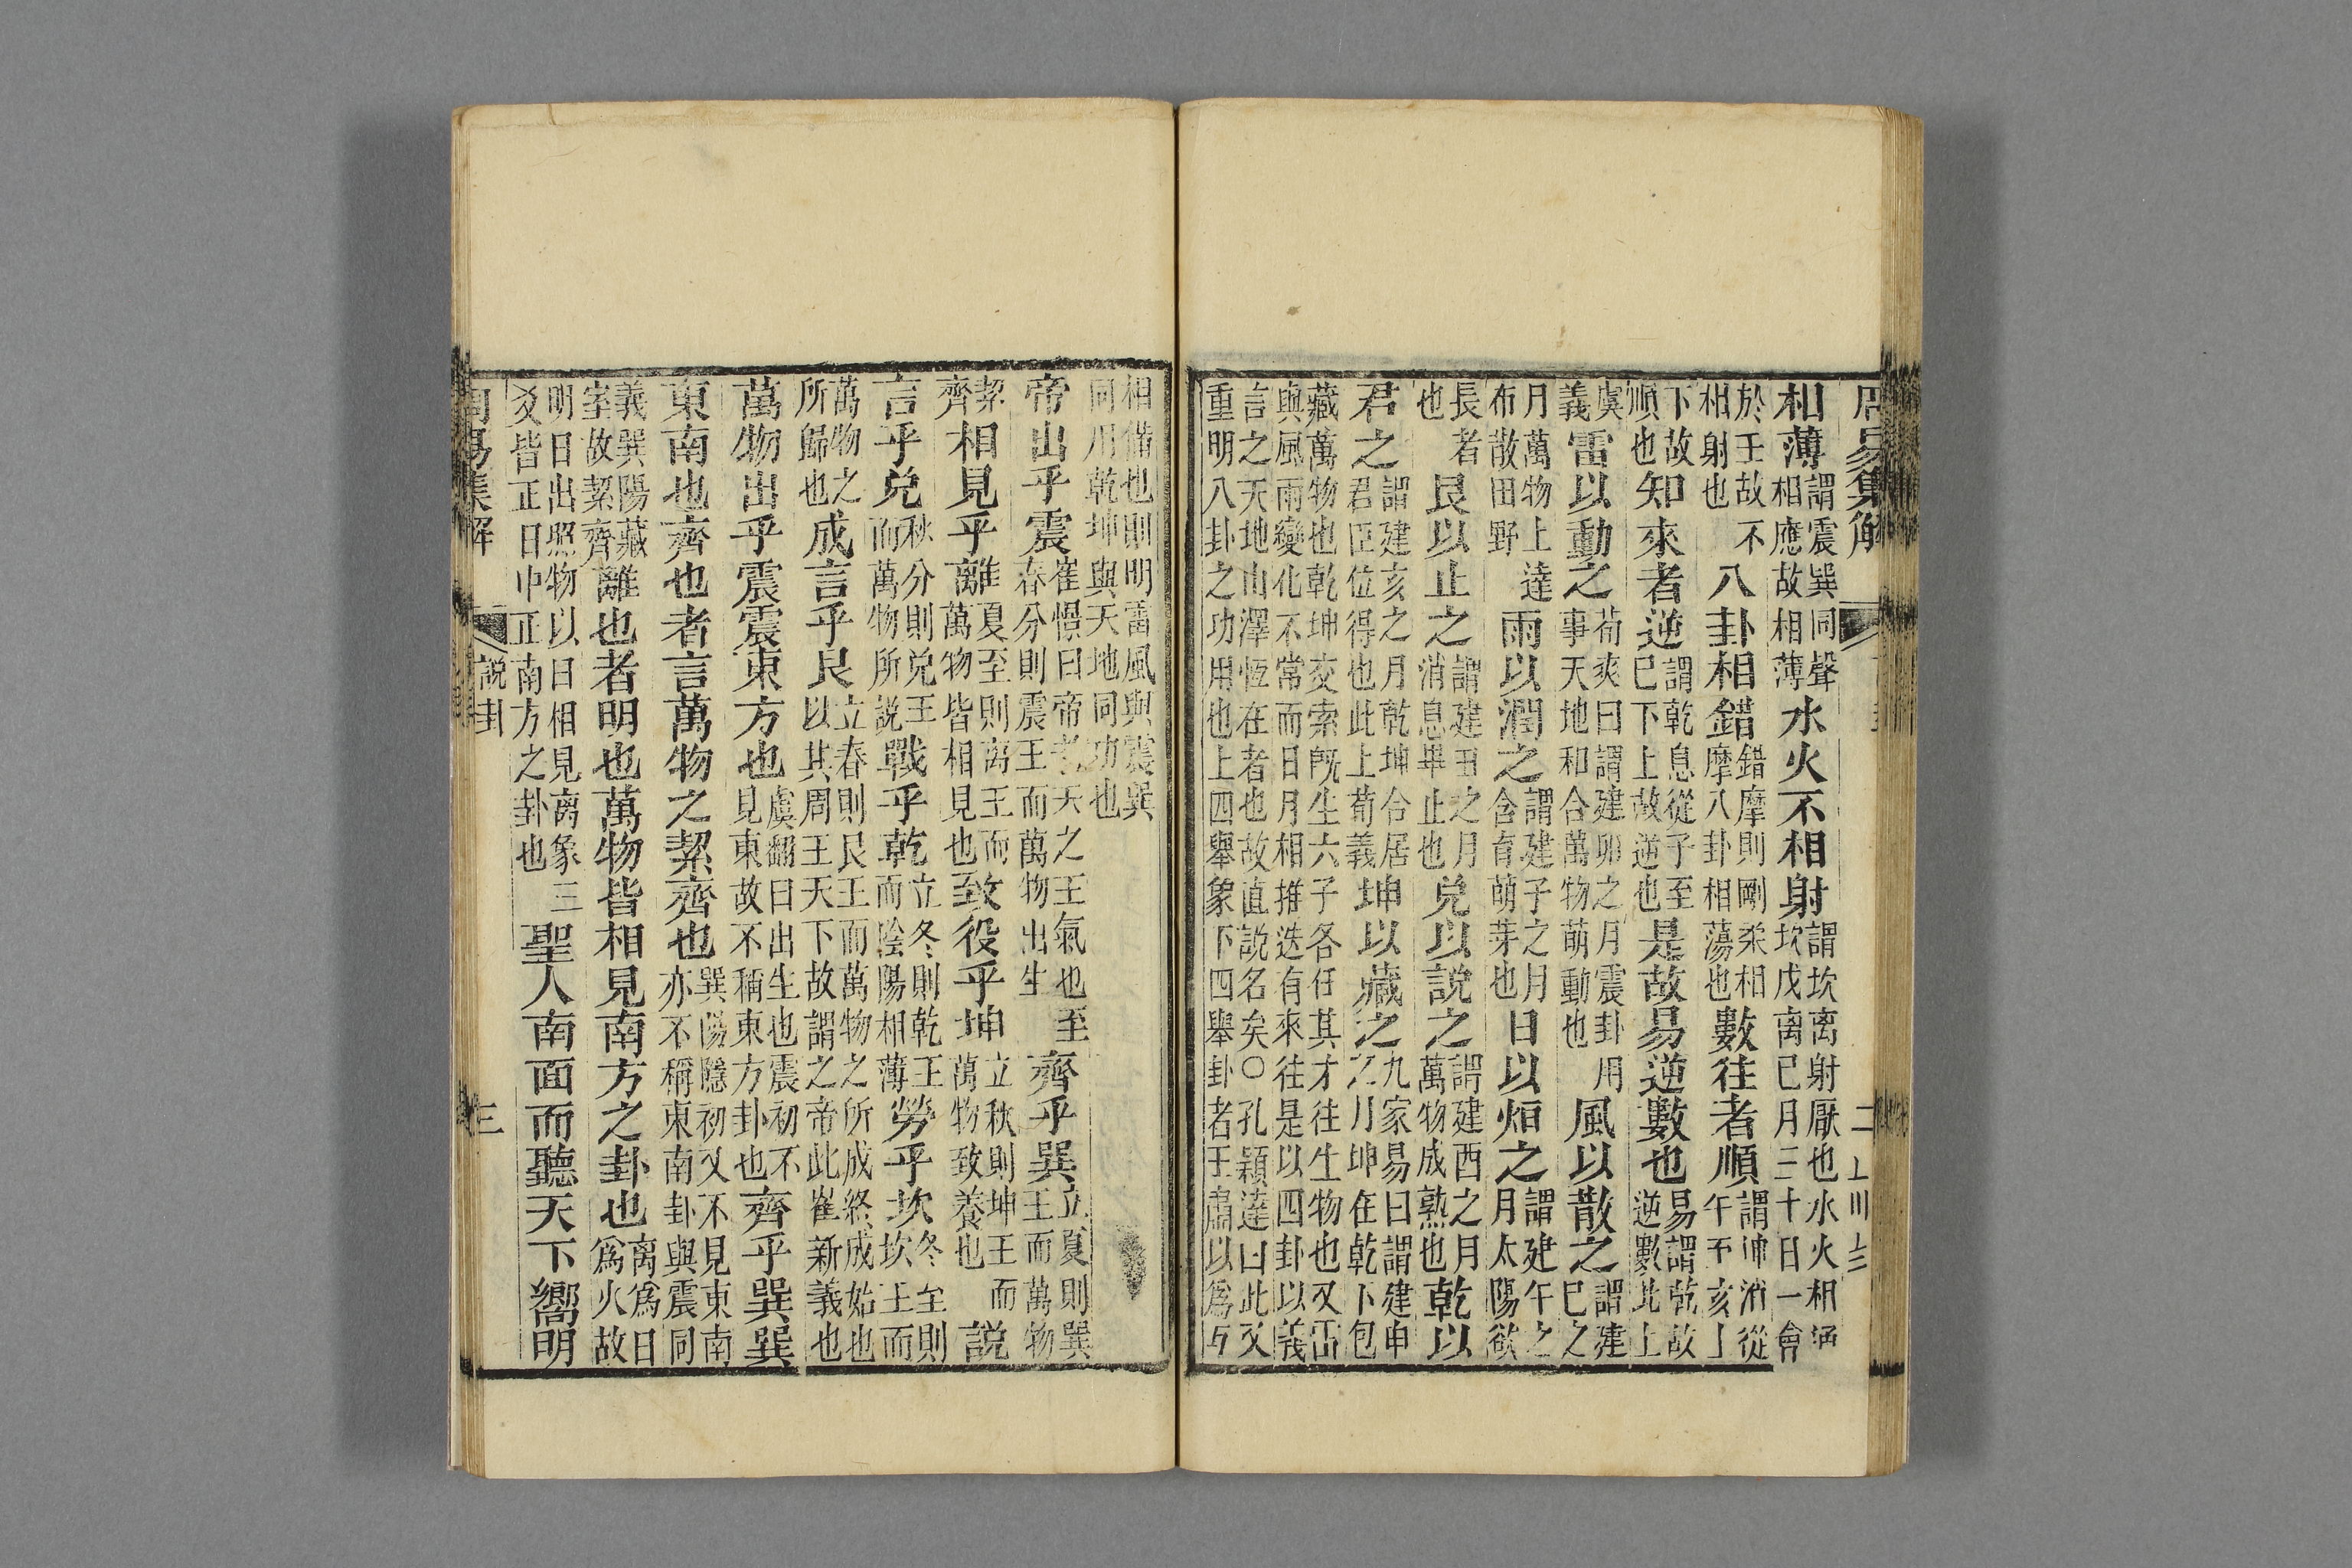 周易集解
二
相薄謂震巽同聲相應故相薄水火不相射謂坎离射厭也水火相通坎戊离己月三十日一會
於壬故不相射也八卦相錯錯摩則剛柔相摩八卦相蕩也數往者順謂坤消從午至亥上
下故順也知來者逆謂乾息從子至巳下上故逆也是故易逆數也易謂乾故逆數此上
虞義雷以動之荀爽曰謂建卯之月震卦用事天地和合萬物萌動也風以散之謂建巳之
月萬物上達布散田野雨以潤之謂建子之月含育萌芽也日以烜之謂建午之月太陽欲
長者也艮以止之謂建丑之月消息畢止也兌以說之謂建酉之月萬物成熟也乾以
君之謂建亥之月乾坤合居君臣位得也此上荀義坤以藏之九家易曰謂建申之月坤在乾下包
藏萬物也乾坤交索既生六子各任其才往生物也又雷與風雨變化不常而日月相推迭有來往是以四卦以義
言之天地山澤恆在者也故直說名矣○孔穎達曰此又重明八卦之功用也上四舉象下四舉卦者王肅以爲互
相備也則明雷風與震巽同用乾坤與天地同功也
帝出乎震崔憬曰帝者天之王氣也至春分則震王而萬物出生齊乎巽立夏則巽王而萬物
絜齊相見乎離夏至則离王而萬物皆相見也致役乎坤立秋則坤王而萬物致養也說
言乎兌秋分則兌王而萬物所說戰乎乾立冬則乾王而陰陽相薄勞乎坎冬至則坎王而
萬物之所歸也成言乎艮立春則艮王而萬物之所成終成始也以其周王天下故謂之帝此崔新義也
萬物出乎震震東方也虞翻曰出生也震初不見東故不稱東方卦也齊乎巽巽
東南也齊也者言萬物之絜齊也巽陽隱初又不見東南亦不稱東南卦與震同
義巽陽藏室故絜齊離也者明也萬物皆相見南方之卦也离爲日爲火故
明日出照物以日相見离象三爻皆正日中正南方之卦也聖人南面而聽天下嚮明
周易集解
說卦
三